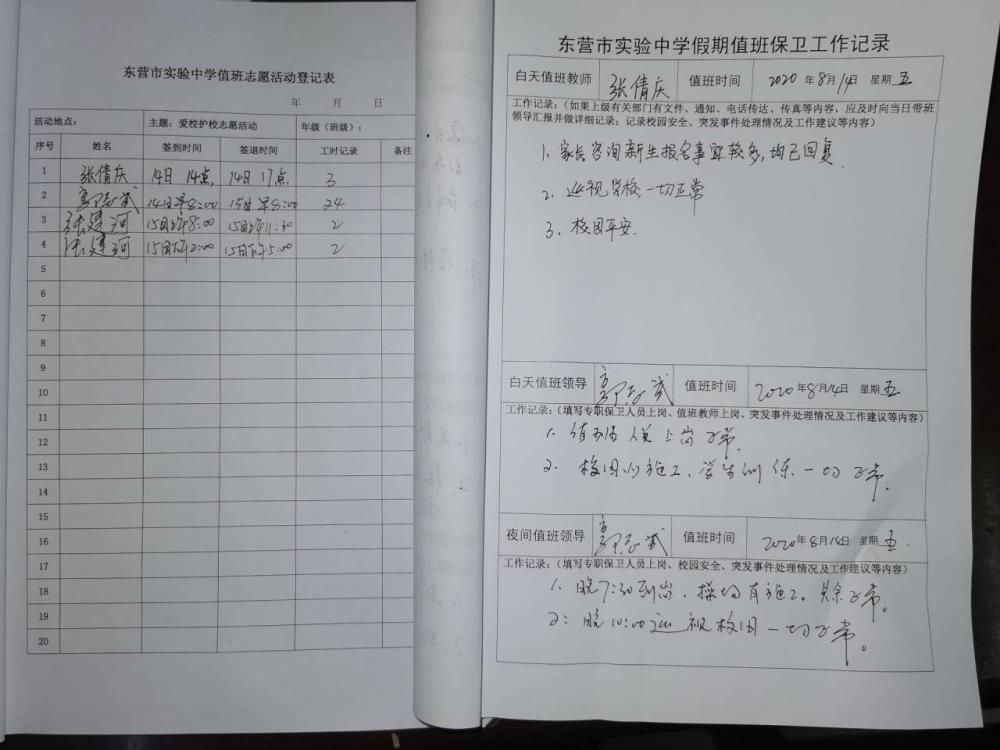 东营市实验中学值班志愿活动登记表
年 月 日
活动地点： 主题：爱校护校志愿活动 年级（班级）：
序号 姓名 签到时间 签退时间 工时记录 备注
1 张倩庆 14日 14点 14日 17点 3
2 14日早8:00 15日早8:00 24
3 张建河 15日上午8:00 15日上午11:30 2
4 张建河 15日下午2:00 15日下午5:00 2
5
6
7
8
9
10
11
12
13
14
15
16
17
18
19
20
东营市实验中学假期值班保卫工作记录
白天值班教师 张倩庆 值班时间 2020年8月14日 星期五
工作记录：（如果上级有关部门有文件、通知、电话传达、传真等内容，应及时向当日带班
领导汇报并做详细记录；记录校园安全、突发事件处理情况及工作建议等内容）
1、家长咨询新生报名事宜较多，均已回复
2、巡视学校，一切正常
3、校园平安.
白天值班领导 值班时间 2020年8月14日 星期五
工作记录：（填写专职保卫人员上岗、值班教师上岗、突发事件处理情况及工作建议等内容）
1、值 人员上岗正常
2、校园内施工、学生训练一切正常.
夜间值班领导 值班时间 2020年8月14日 星期五.
工作记录：（填写专职保卫人员上岗、校园安全、突发事件处理情况及工作建议等内容）
1、晚7:30到岗、操场有施工。其余正常。
2: 晚10:00巡视校园一切正常。